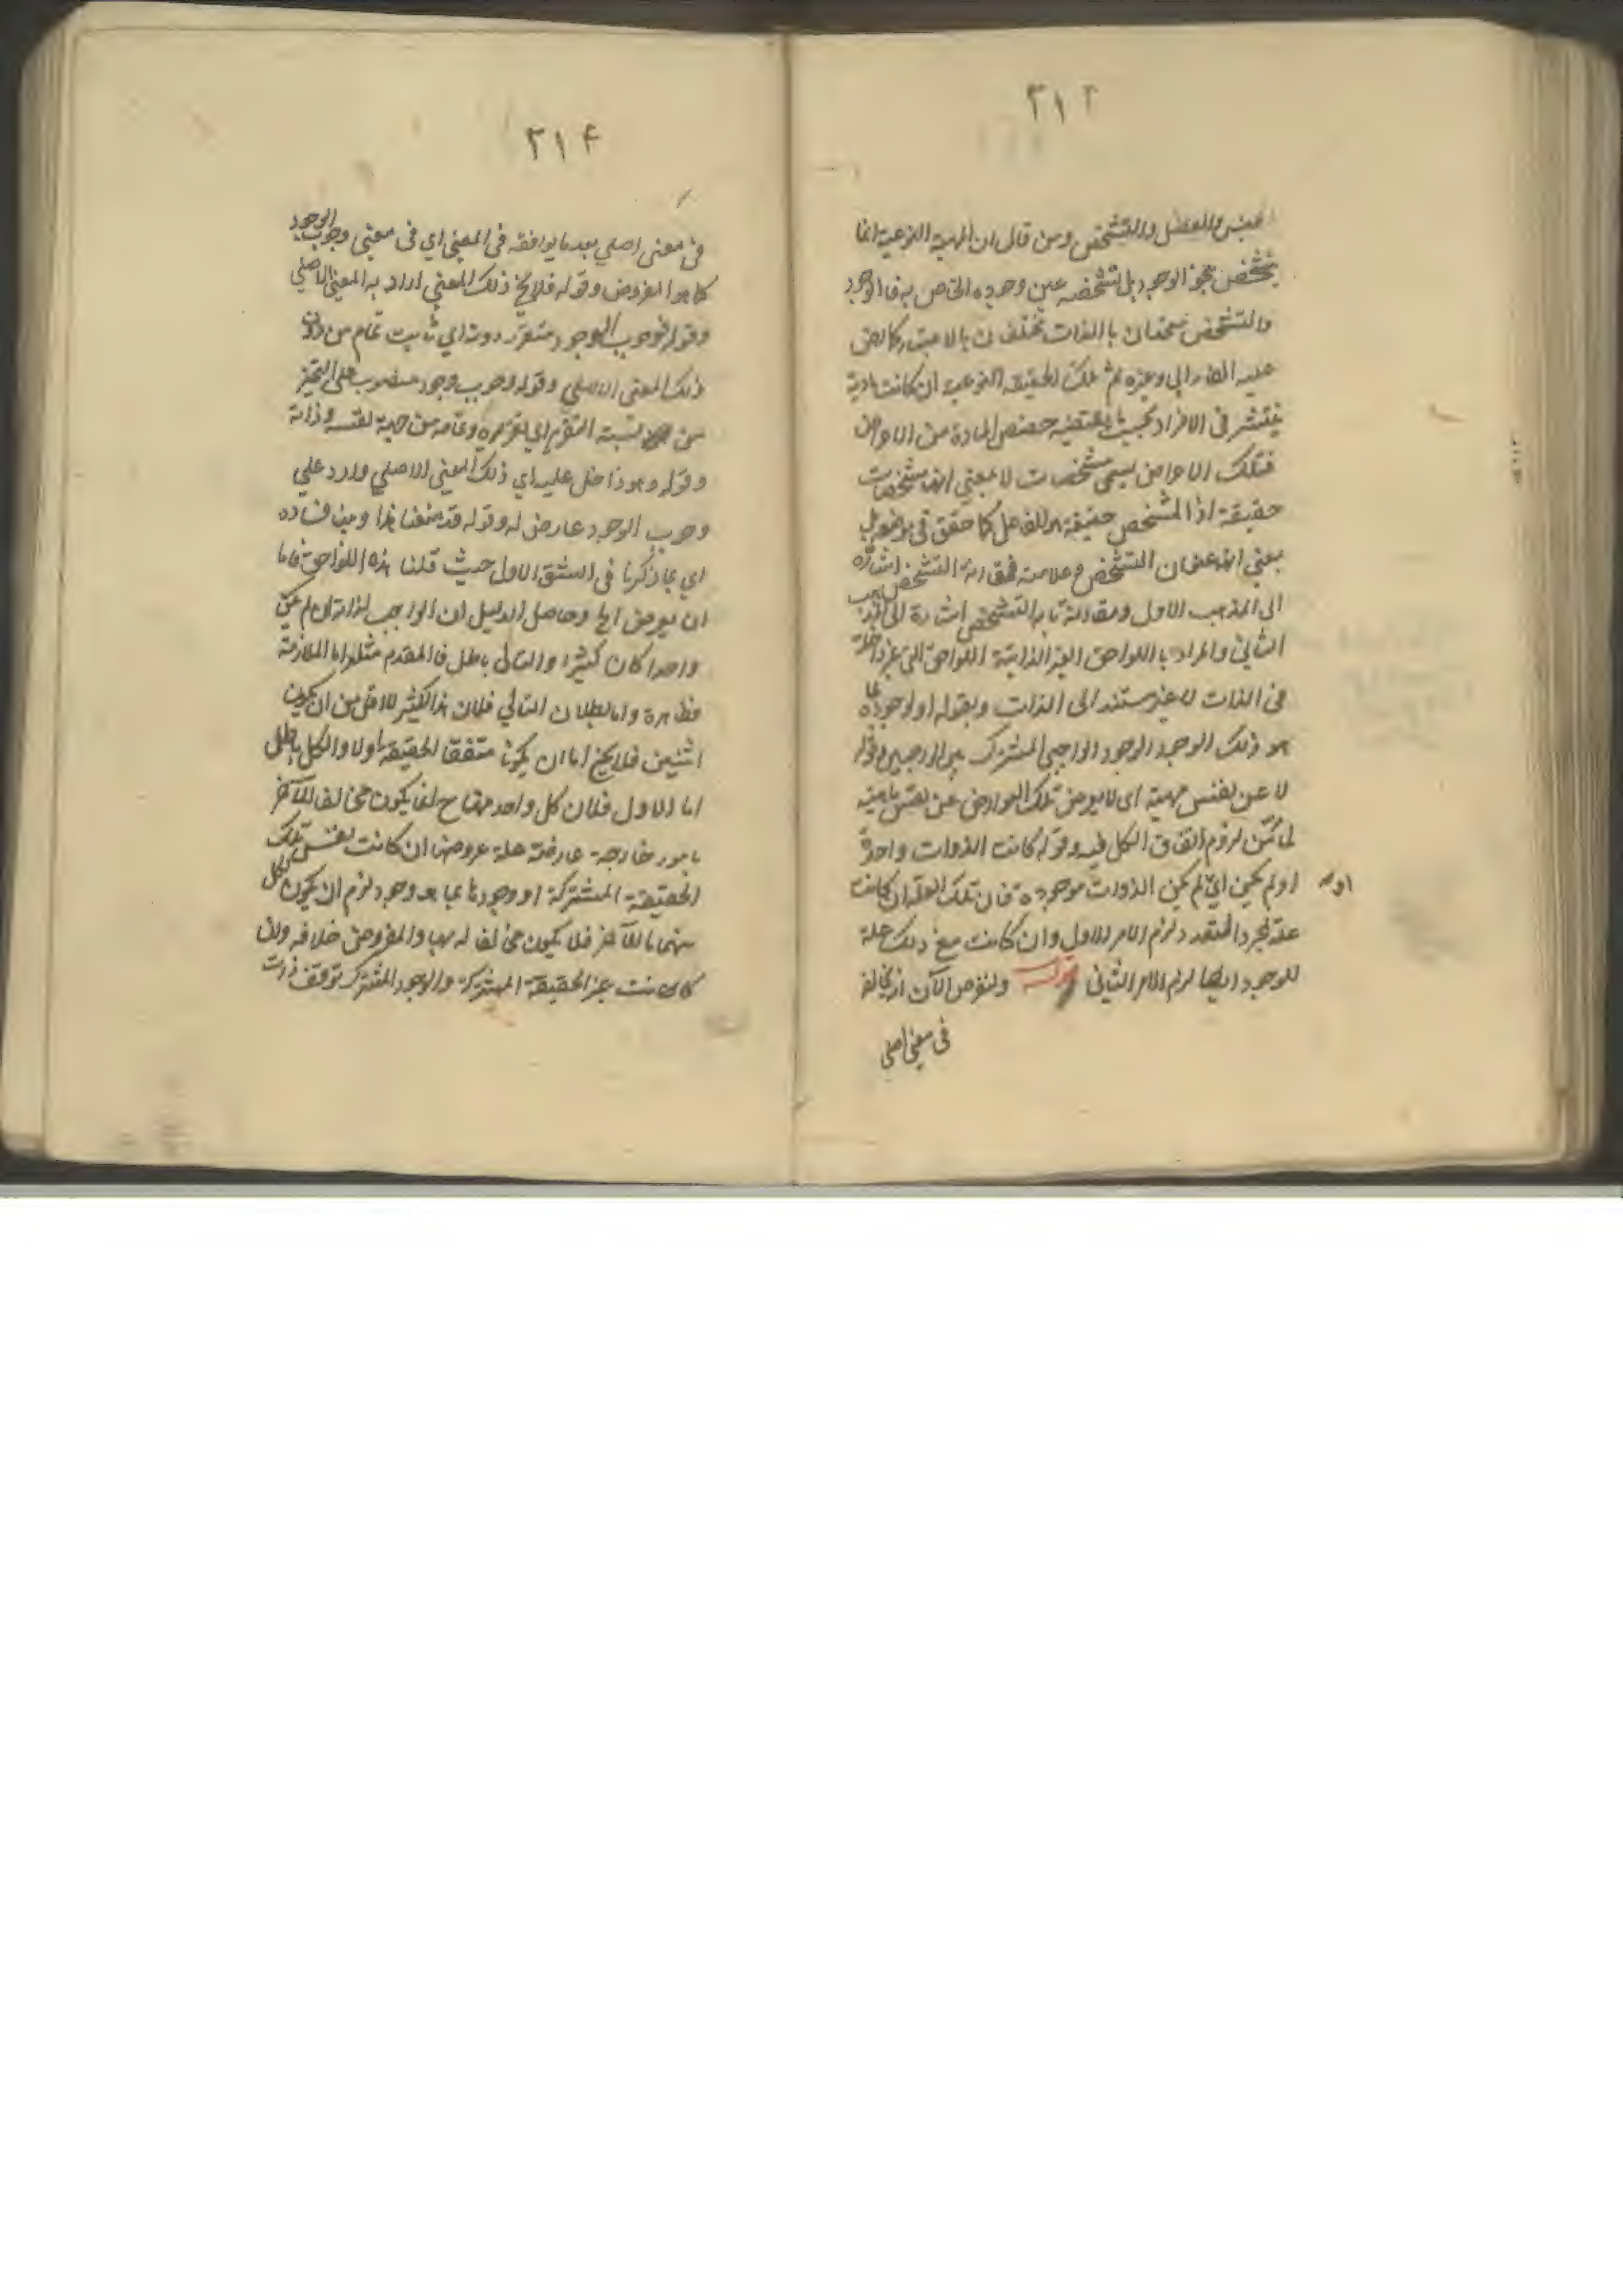 ٣١٣
الجنس والفصل والتشخص ومن قال ان المهية النوعية انما
يتشخص بنحو الوجود بل تشخصه عين وجوده الخاص به فالوجود
والتشخص متحدان بالذات مختلفان بالاعتبار كما نص
عليه الفارابي وغيره ثم تلك الحقيقة النوعية ان كانت مادية
ينتشر فى الافراد بحسب ما يقتضيه حصص المادة من الاعراض
فتلك الاعراض يسمى مشخصات لا بمعنى انها مشخصات
حقيقة اذ المشخص حقيقة هو الفاعل كما حقق فى موضعه بل
بمعنى انها عنوان التشخص وعلامته فمقارنة التشخص اشارة
الى المذهب الاول ومقارنة ما به التشخص اشارة الى المذهب
الثانى والمراد باللواحق الغير الذاتية اللواحق التى غير داخلة
فى الذات لا غير مستند الى الذات وبقوله او لوجود ما
هو ذلك الوجود الوجود الواجبى المشترك بين الواجبين وقوله
لا عن نفس مهية اى لا يعرض تلك العوارض عن نفس ماهية
لما تبين لزوم اتفاق الكل فيه وقوله كانت الذوات واحدة
او لم يكن اى لم يكن الذوات موجودة فان تلك العلة ان كانت
علة لمجرد التعدد لزم الامر الاول وان كانت مع ذلك علة
للوجود ايضا لزم الامر الثانى قوله ولنفرض الآن انه يخالفه
فى معنى اصلى
٣١٤
فى معنى اصلى بعد ما يوافقه فى المعنى اي فى معنى وجوب الوجود
كما هو المفروض وقوله فلا يخ ذلك المعنى اراد به المعنى الاصلى
وقوله فوجوب الوجود متقرر دونه اي ثابت تمام من دون
ذلك المعنى الاصلي وقوله وجوب وجود منصوب على التميز
من نسبة التقرر اي تقرره وتمامه من جهة نفسه وذاته
وقوله وهو داخل عليه اي ذلك المعنى الاصلي وارد علي
وجوب الوجود عارض له وقوله قد منعنا هذا وبين فساده
اي بما ذكرنا فى الشق الاول حيث قلنا هذه اللواحق فاما
ان يعرض الخ وحاصل الدليل ان الواجب لذاته لو لم يكن
واحدا كان كثيرا والتالى باطل فالمقدم مثله اما الملازمة
فظاهرة واما بطلان التالي فلان هذا الكثير لا اقل من ان يكون
اثنين فلا يخ اما ان يكونا متفقا الحقيقة او لا والكل باطل
اما الاول فلان كل واحد منهما ح انما يكون مخالفا للآخر
بامور خارجة عارضة علة عروضها ان كانت نفس تلك
الحقيقة المشتركة او وجودها بما هو وجود لزم ان يكون لكل
منهما ما للآخر فلا يكون مخالفا له بها والمفروض خلافه وان
كانت غير الحقيقة المشتركة والوجود المشترك توقف ذات